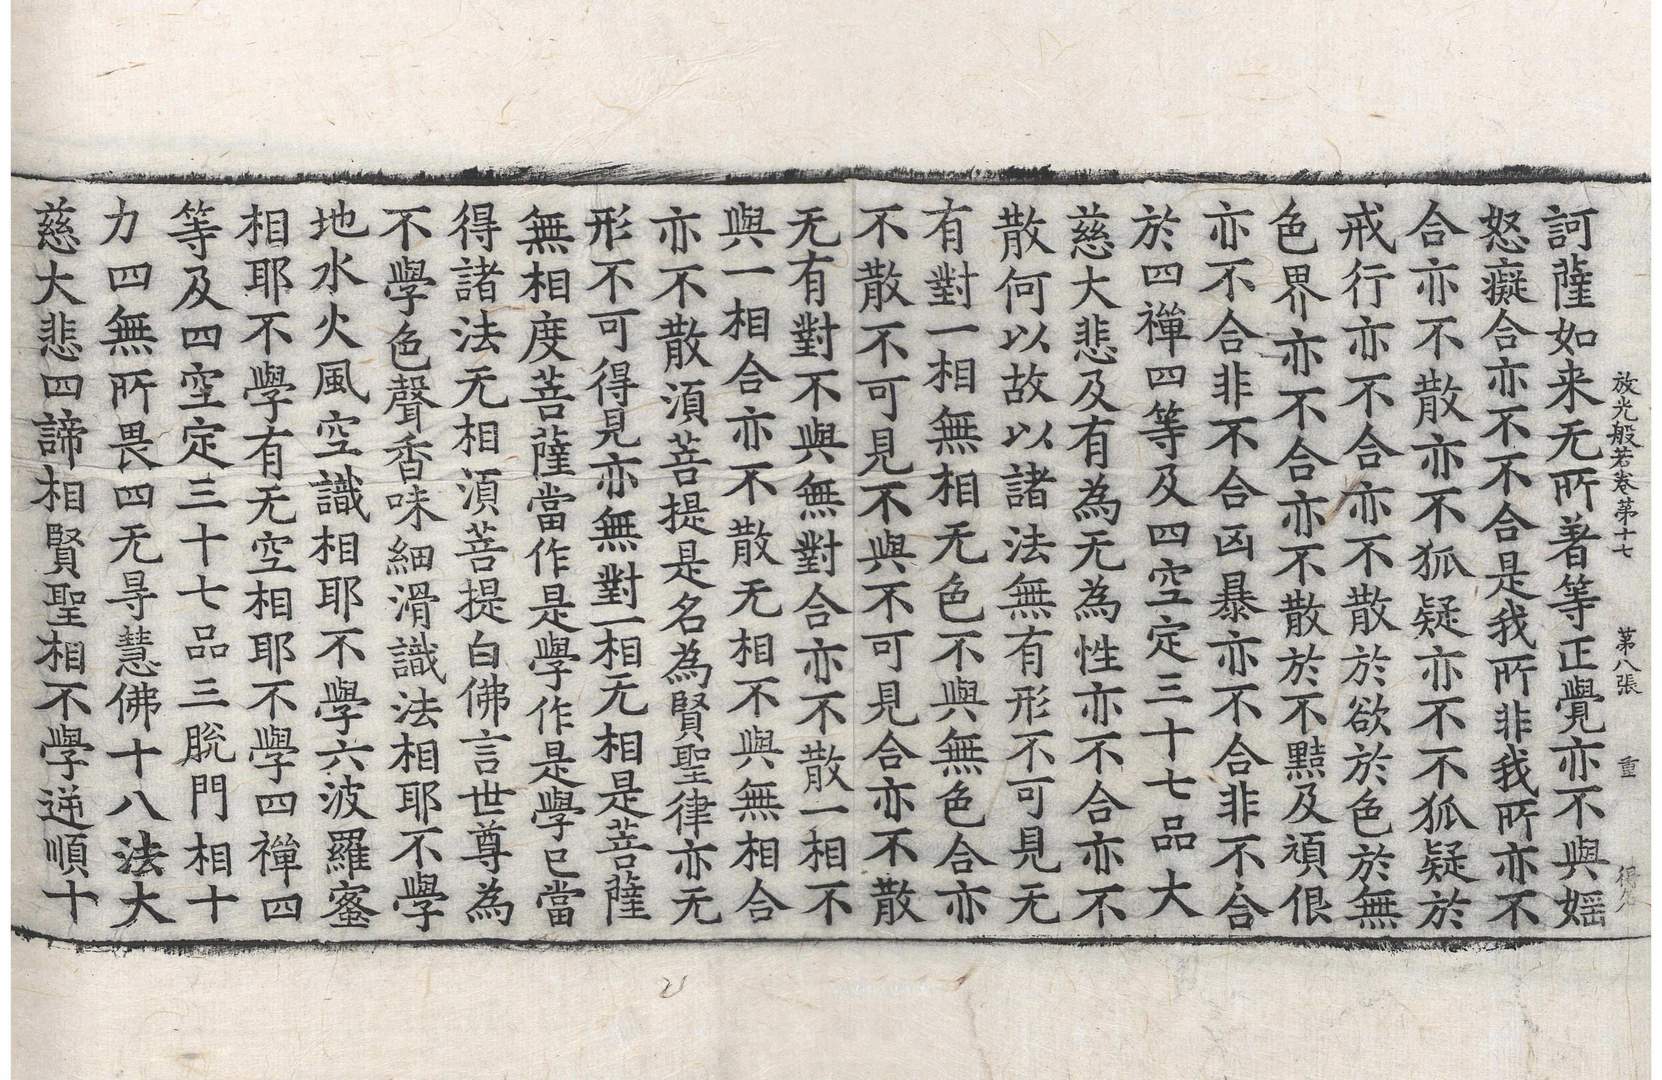 放光般若卷苐十七 苐八張 重
訶薩如来无所著等正覺亦不與婬
怒癡合亦不不合是我所非我所亦不
合亦不散亦不狐疑亦不不狐疑於
戒行亦不合亦不散於欲於色於無
色界亦不合亦不散於不黠及頑佷
亦不合非不合凶暴亦不合非不合
於四禪四等及四空定三十七品大
慈大悲及有為无為性亦不合亦不
散何以故以諸法無有形不可見无
有對一相無相无色不與無色合亦
不散不可見不與不可見合亦不散
无有對不與無對合亦不散一相不
與一相合亦不散无相不與無相合
亦不散湏菩提是名為賢聖律亦无
形不可得見亦無對一相无相是菩薩
無相度菩薩當作是學作是學已當
得諸法无相湏菩提白佛言世尊為
不學色聲香味細滑識法相耶不學
地水火風空識相耶不學六波羅蜜
相耶不學有无空相耶不學四禪四
等及四空定三十七品三脫門相十
力四無所畏四无㝵慧佛十八法大
慈大悲四諦相賢聖相不學逆順十